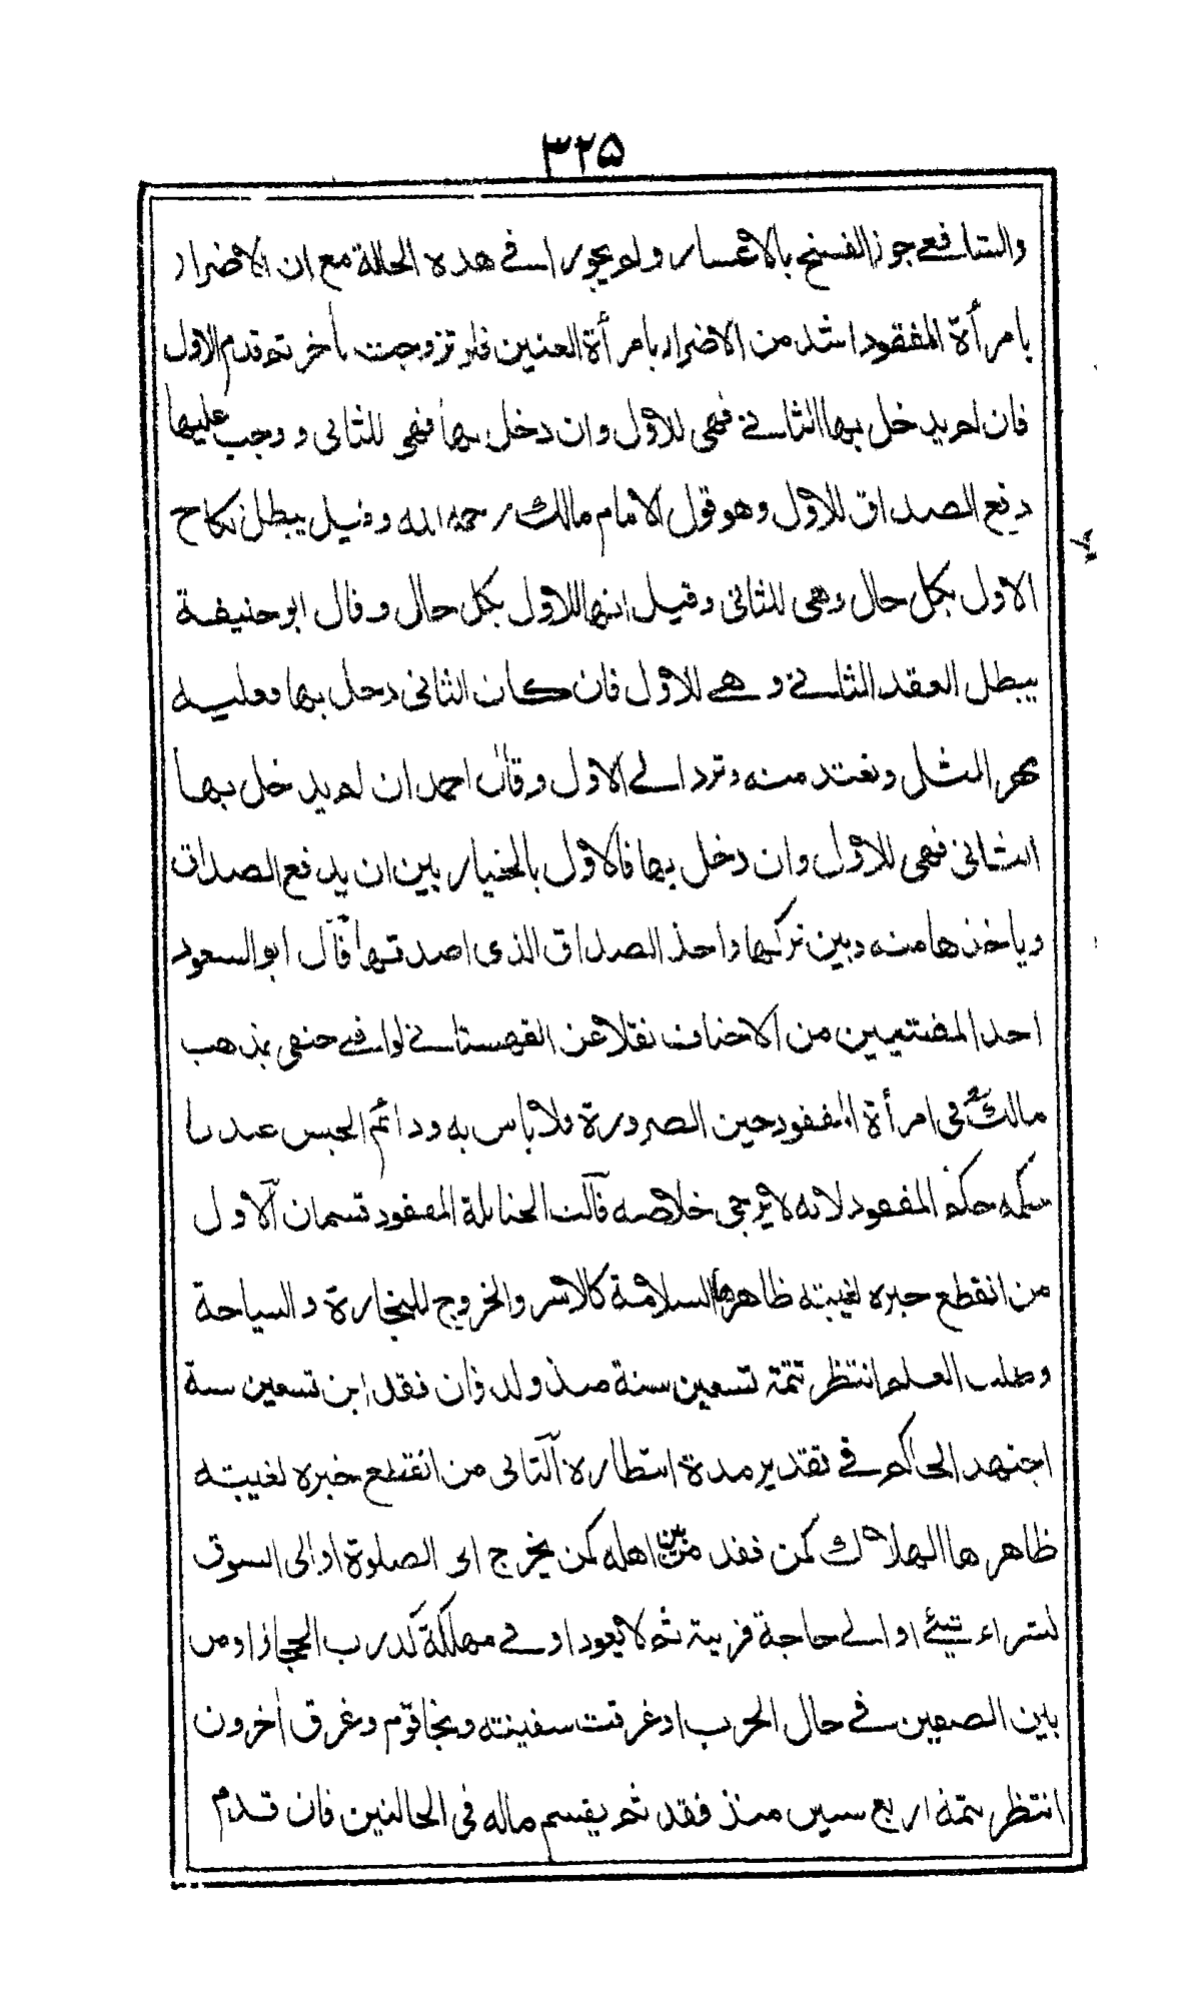 ٣٢٥
والشافعي جوز الفسخ بالاعسار ولم يجوزا في هذه الحالة مع ان الاضرار
بامرأة المفقود اشد من الاضرار بامرأة العنين فلو تزوجت باخر ثم قدم الاول
فان لم يدخل بها الثاني فهي للاول وان دخل بها فهي للثاني ووجب عليها
دفع الصداق للاول وهو قول الامام مالك رحمه الله وقيل يبطل نكاح
الاول بكل حال وهي للثاني وقيل انها للاول بكل حال وقال ابو حنيفة
يبطل العقد الثاني وهي للاول فان كان الثاني دخل بها فعليه
مهر المثل وتعتد منه وترد الى الاول وقال احمد ان لم يدخل بها
الثاني فهي للاول وان دخل بها فالاول بالخيار بين ان يدفع الصداق
وياخذها منه وبين تركها واخذ الصداق الذي اصدقها قال ابو السعود
احد المفتيين من الاحناف نقلا عن القهستاني لو افتى حنفي بمذهب
مالك في امرأة المفقود حين الضرورة فلا باس به ودائم الحبس عندنا
حكمه حكم المفقود لانه لا يرجى خلاصه قالت الحنابلة المفقود قسمان الاول
من انقطع خبره لغيبته ظاهرها السلامة كالاسر والخروج للتجارة والسياحة
وطلب العلم انتظر تتمة تسعين سنة منذ ولد فان فقد ابن تسعين سنة
اجتهد الحاكم في تقدير مدة انتظاره الثاني من انقطع خبره لغيبته
ظاهرها الهلاك كمن فقد من بين اهله كمن يخرج الى الصلوة او الى السوق
لشراء شيء او الى حاجة قريبة ثم لا يعود او في مهلكة كدرب الحجاز او من
بين الصفين في حال الحرب او غرقت سفينته ونجا قوم وغرق اخرون
انتظر تتمة اربع سنين منذ فقد ثم يقسم ماله في الحالتين فان قدم